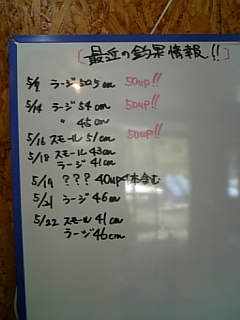 [最近の釣果情報!!]
5/9 ラージ 50.5cm 50up!!
5/14 ラージ 54cm 50up!!
〃 45cm
5/16 スモール 51cm 50up!!
5/18 スモール 43cm
ラージ 41cm
5/19 ??? 40up4本含む
5/21 ラージ 46cm
5/22 スモール 41cm
ラージ 46cm